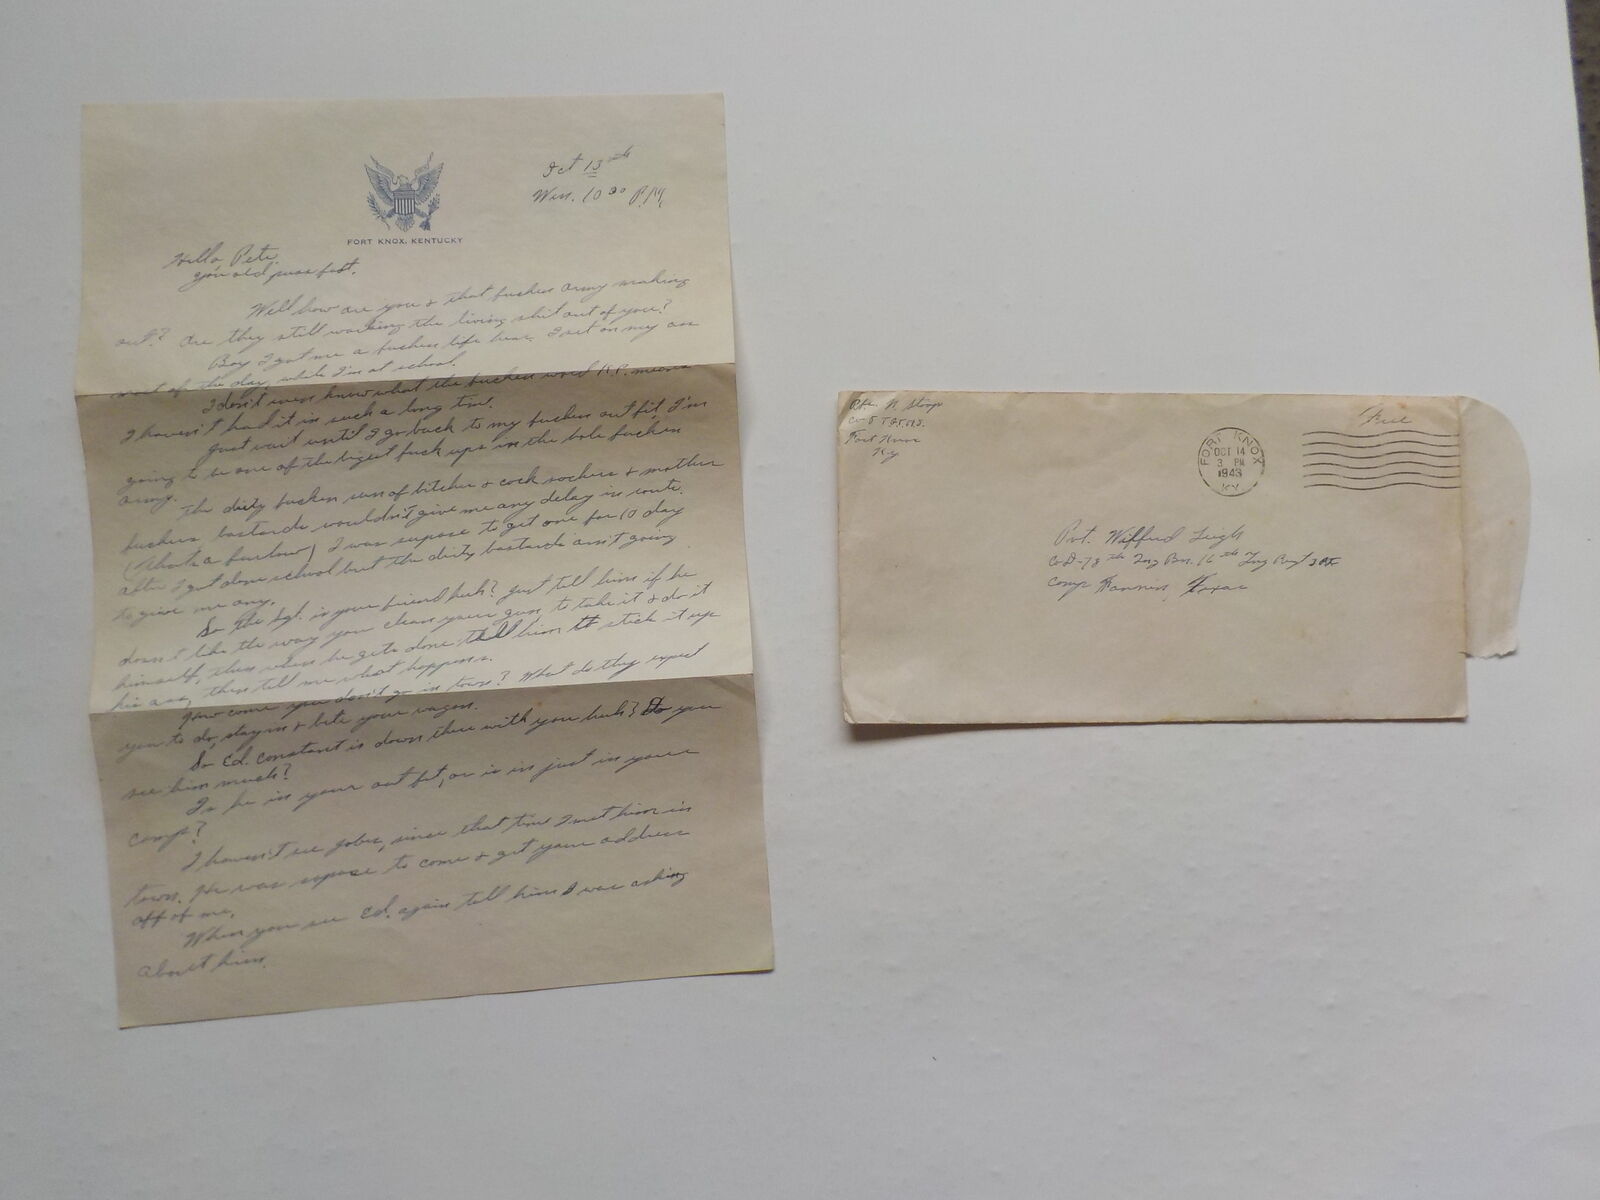 Oct 13th
Wen. 10 30 P.M.
FORT KNOX, KENTUCKY
Hello Pete,
you old puss fart.
Well how are you & that fucken army making
out? Are they still working the living shit out of you?
Boy I got me a fucken life hear. I set on my ass
most of the day, while I'm at school.
I don't even know what the fucken word K.P. means
I haven't had it in such a long time.
Just wait until I go back to my fucken out fit, I'm
going to be one of the bigest fuck ups in the hole fucken
army.
The dirty fucken sun of bitches & cock sockers & mother
fuckers, bastards wouldn't give me any delay in route.
(thats a furlow) I was supose to get one for 10 day
after I got done school but the dirty bastards ain't going
to give me any.
So the Sgt. is your friend huh? Just tell him if he
doesn't like the way you clean your gun, to take it & do it
himself, then when he gets done tell him to stick it up
his ass, then tell me what happens.
How come you don't go in town? What do they expect
you to do, stay in & bite your wagon.
So Ed. Constant is down there with you huh? Do you
see him much?
Is he in your out fit, or is in just in your
camp?
I haven't see Jober, since that time I met him in
town. He was supose to come & get your address
off of me.
When you see Ed. again tell him I was asking
about him.
Pfc. N Stoop
Co-
Fort Knox
Ky
Free
FORT KNOX
OCT 14
3 PM
1943
KY.
Pvt. Wilfred Leigh
Co D-78th Tng Bn. 16th Tng Regt
Camp Fannin, Texas